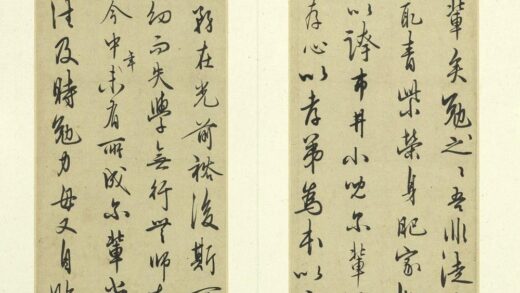 輩矣勉之〻吾非徒
取青紫榮身肥家
以誇市井小兒尔輩
存心以孝弟為本以
務在光前裕後斯
幼而失學無行無師友
今中年未有所成尔輩
往及時勉力毋又自貽